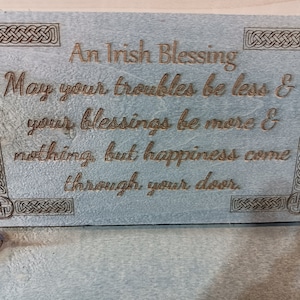 An Irish Blessing
May your troubles be less &
your blessings be more &
nothing but happiness come
through your door.